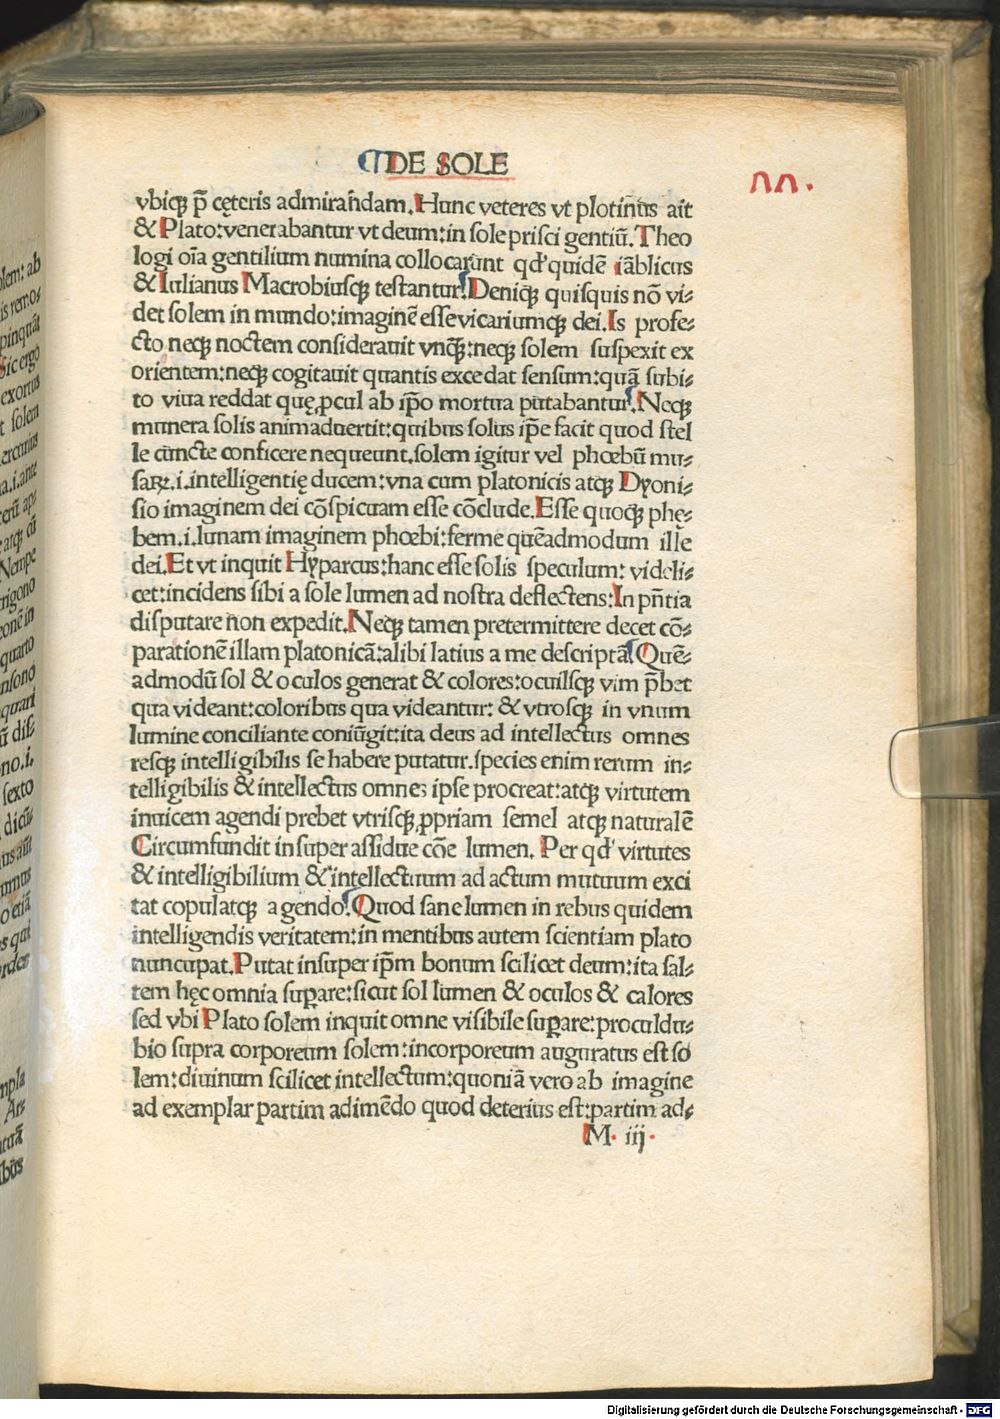 ¶DE SOLE
nn.
vbiqꝫ p̄ cęteris admirañdam. Hunc veteres vt plotinūs ait
& Plato: venerabantur vt deum: in sole prisci gentiū. Theo
logi oīa gentilium numina collocarunt qd' quidē iāblicus
& Iulianus Macrobiusqꝫ testantur. Deniqꝫ quisquis nō vi⸗
det solem in mundo: imaginē esse vicariumqꝫ dei. Is profe⸗
cto neqꝫ noctem considerauit vnqꝫ̄: neqꝫ solem suspexit ex
orientem: neqꝫ cogitauit quantis excedat sensum: quā subi⸗
to viua reddat quę, ꝓcul ab ip̄o mortua putabantur. Neqꝫ
munera solis animaduertit: quibus solus ip̄e facit quod stel
le cūncte conficere nequeunt. solem igitur vel phœbū mu⸗
saꝝ .i. intelligentię ducem: vna cum platonicis atqꝫ Dyoni⸗
sio imaginem dei cōspicuam esse cōclude. Esse quoqꝫ phę⸗
bem .i. lunam imaginem phœbi: ferme quēadmodum ille
dei. Et vt inquit Hyparcus: hanc esse solis speculum: videli⸗
cet: incidens sibi a sole lumen ad nostra deflectens: In pn̄tia
disputare non expedit. Neqꝫ tamen pretermittere decet cō⸗
parationē illam platonicā: alibi latius a me descriptā. Quē⸗
admodū sol & oculos generat & colores: ocuilsqꝫ vim p̄bet
qua videant: coloribus qua videantur: & vtrosqꝫ in vnum
lumine conciliante coniūgit: ita deus ad intellectus omnes
resqꝫ intelligibilis se habere putatur. species enim rerum in⸗
telligibilis & intellectus omneꝫ ipse procreat: atqꝫ virtutem
inuicem agendi prebet vtrisqꝫ, ꝓpriam semel atqꝫ naturalē
Circumfundit insuper assidue cōe lumen. Per qd' virtutes
& intelligibilium & intellectuum ad actum mutuum exci
tat copulatqꝫ agendo. Quod sane lumen in rebus quidem
intelligendis veritatem: in mentibus autem scientiam plato
nuncupat. Putat insuper ip̄m bonum scilicet deum: ita sal⸗
tem hęc omnia suꝑare: sicut sol lumen & oculos & calores
sed vbi Plato solem inquit omne visibile suꝑare: proculdu⸗
bio supra corporeum solem: incorporeum auguratus est so
lem: diuinum scilicet intellectum: quoniā vero ab imagine
ad exemplar partim adimēdo quod deterius est: partim ad⸗
M. iij.
Digitalisierung gefördert durch die Deutsche Forschungsgemeinschaft - DFG